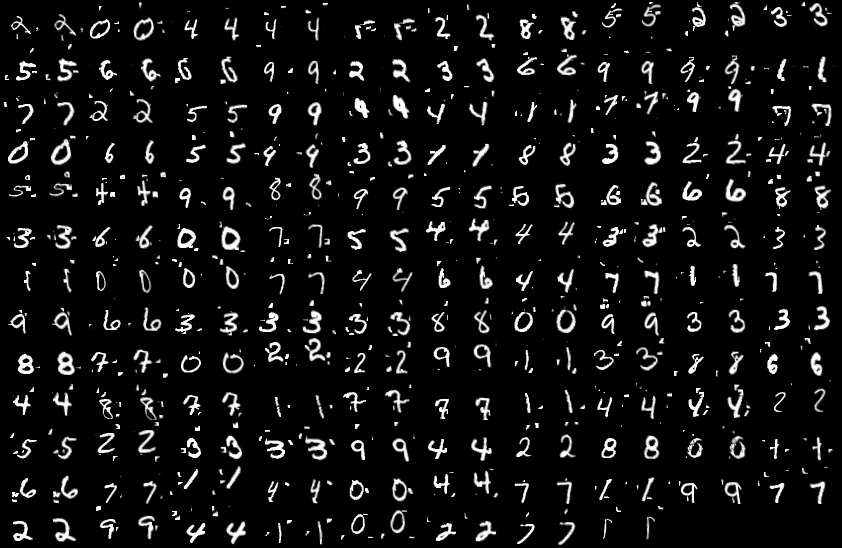 2 2 0 0 4 4 4 4 2 2 8 8 5 5 2 2 3 3
5 5 6 6 6 6 9 9 2 2 3 3 6 6 9 9 9 9 1 1
7 7 2 2 5 5 9 9 4 4 4 4 1 1 7 7 9 9 7 7
0 0 6 6 5 5 9 9 3 3 7 7 8 8 3 3 2 2 4 4
5 5 4 4 9 9 8 8 9 9 5 5 5 5 6 6 6 6 8 8
3 3 6 6 0 0 7 7 5 5 4 4 4 4 3 3 2 2 3 3
1 1 0 0 0 0 7 7 4 4 6 6 4 4 7 7 1 1 7 7
9 9 6 6 3 3 3 3 3 3 8 8 0 0 9 9 3 3 3 3
8 8 7 7 0 0 2 2 2 2 9 9 1 1 3 3 8 8 6 6
4 4 8 8 7 7 1 1 7 7 7 7 1 1 4 4 4 4 2 2
5 5 2 2 3 3 3 3 9 9 4 4 2 2 8 8 0 0 4 4
6 6 7 7 1 1 4 4 0 0 4 4 7 7 1 1 9 9 7 7
2 2 9 9 4 4 1 1 0 0 2 2 7 7 1 1